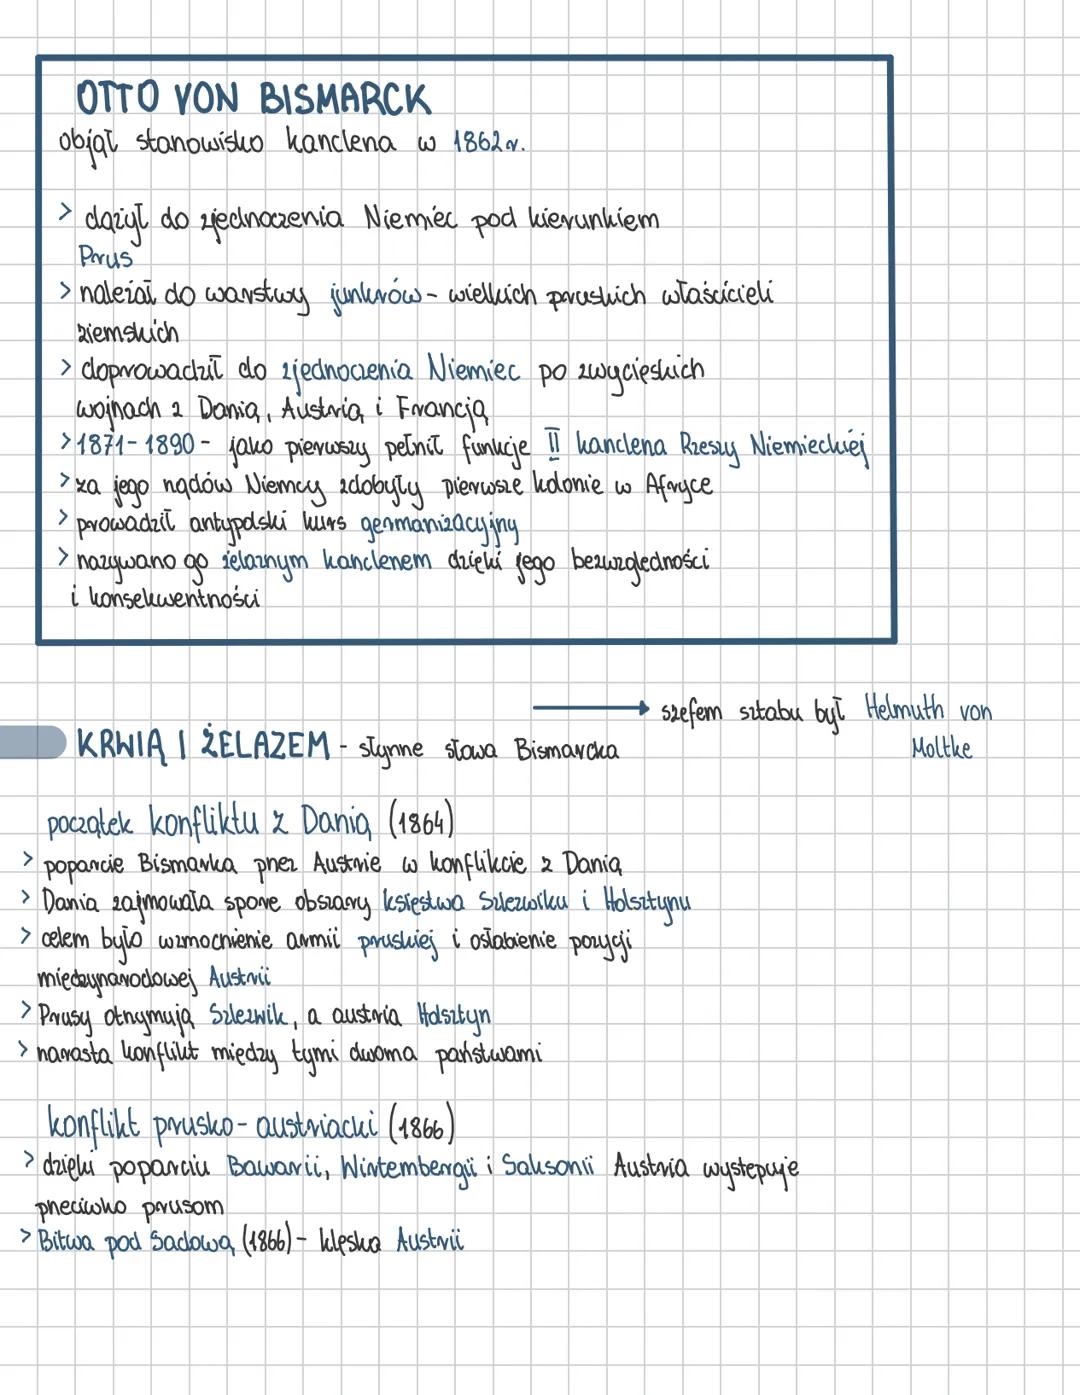 OTTO VON BISMARCK
objął stanowisko kanclerza w 1862 r.
> dążył do zjednoczenia Niemiec pod kierunkiem
Prus
> należał do warstwy junkrów - wielkich pruskich właścicieli
ziemskich
> doprowadził do zjednoczenia Niemiec po zwycięskich
wojnach z Danią, Austrią i Francją
> 1871-1890 - jako pierwszy pełnił funkcje II kanclerza Rzeszy Niemieckiej
> za jego rządów Niemcy zdobyły pierwsze kolonie w Afryce
> prowadził antypolski kurs germanizacyjny
> nazywano go żelaznym kanclerzem dzięki jego bezwzględności
i konsekwentności
szefem sztabu był Helmuth von
Moltke
KRWIĄ I ŻELAZEM - słynne słowa Bismarcka
początek konfliktu z Danią (1864)
> poparcie Bismarka przez Austrie w konflikcie z Danią
> Dania zajmowała spore obszary księstwa Szlezwiku i Holsztynu
> celem było wzmocnienie armii pruskiej i osłabienie pozycji
międzynarodowej Austrii
> Prusy otrzymują Szlezwik, a austria Holsztyn
> narasta konflikt między tymi dwoma państwami
konflikt prusko-austriacki (1866)
> dzięki poparciu Bawarii, Wirtembergii i Saksonii Austria występuje
przeciwko prusom
> Bitwa pod Sadową (1866) - klęska Austrii